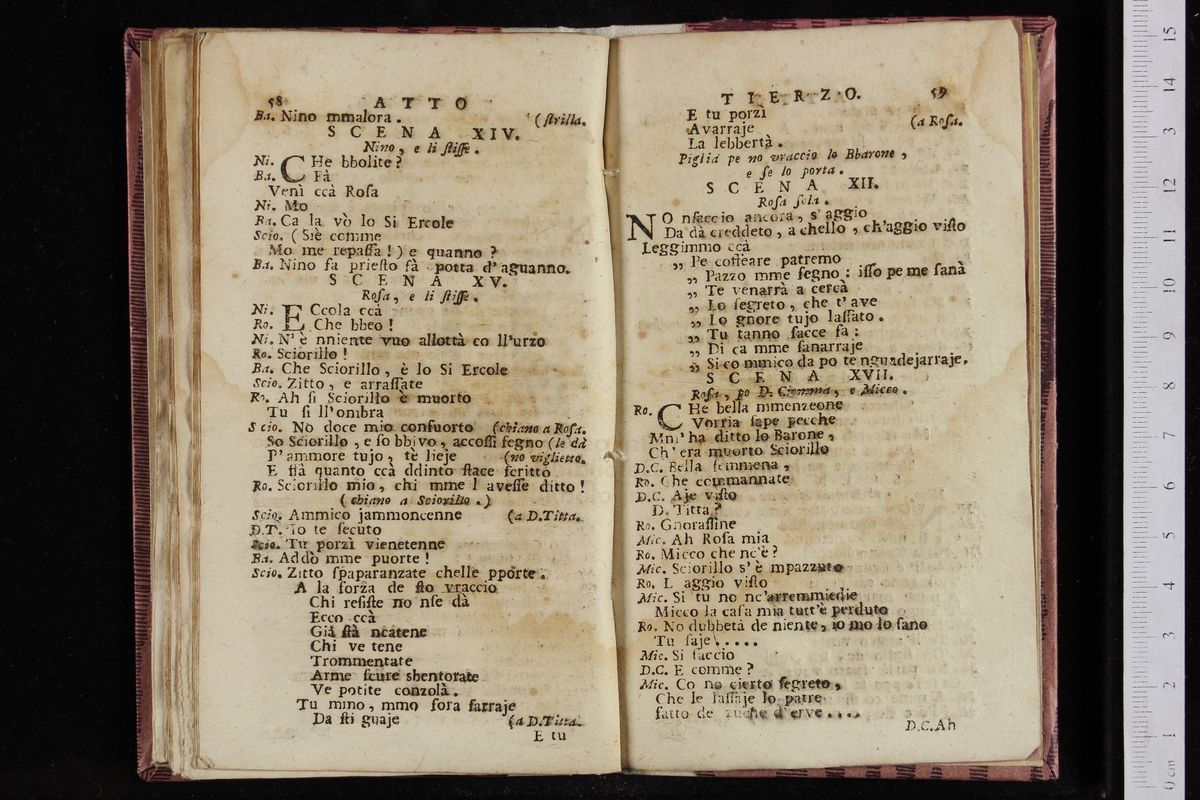 58 ATTO
Ba. Nino mmalora. (ſtrilla.
SCENA XIV.
Nino, e li ſtiſſe.
Ni. CHe bbolite?
Ba. Fà
Venì ccà Roſa
Ni. Mo
Ba. Ca la vò lo Si Ercole
Scio. (Siè comme
Mo me repaſſa!) e quanno?
Ba. Nino fa prieſto fà potta d'aguanno.
SCENA XV.
Roſa, e li ſtiſſe.
Ni. ECcola ccà
Ro. Che bbeo!
Ni. N'è nniente vuo allottà co ll'urzo
Ro. Sciorillo!
Ba. Che Sciorillo, è lo Si Ercole
Scio. Zitto, e arraſſate
Ro. Ah ſi Sciorillo è muorto
Tu ſi ll'ombra
Scio. Nò doce mio confuorto (chiano a Roſa.
So Sciorillo, e ſo bbivo, accoſſi fegno (le dà
P'ammore tujo, tè lieje (no viglietto.
E ſtà quanto ccà ddinto ſtace ſcritto
Ro. Sciorillo mio, chi mme l aveſſe ditto!
(chiano a Sciorillo.)
Scio. Ammico jammoncenne (a D.Titta.
D.T. Io te ſecuto
Scio. Tu porzì vienetenne
Ba. Addò mme puorte!
Scio. Zitto ſpaparanzate chelle pporte.
A la forza de ſto vraccio
Chi reſiſte no nſe dà
Ecco ccà
Già ſtà ncatene
Chi ve tene
Trommentate
Arme ſcure sbentorate
Ve potite conzolà.
Tu mmo, mmo fora farraje
Da ſti guaje (a D.Titta.
E tu
TIERZO. 59
E tu porzì
Avarraje (a Roſa.
La lebbertà.
Piglia pe no vraccio lo Bbarone,
e ſe lo porta.
SCENA XII.
Roſa ſola.
NO nſaccio ancora, s'aggio
Da dà creddeto, a chello, ch'aggio viſto
Leggimmo ccà
„ Pe coffeare patremo
„ Pazzo mme fegno: iſſo pe me ſanà
„ Te venarrà a cercà
„ Lo ſegreto, che t'ave
„ Lo gnore tujo laſſato.
„ Tu tanno facce fa:
„ Di ca mme ſanarraje
„ Si co mmico da po te nguadejarraje.
SCENA XVII.
Roſa, po D. Ciomma, e Micco.
Ro. CHe bella mmenzeone
Vorria ſape pecche
Mm'ha ditto lo Barone,
Ch'era muorto Sciorillo
D.C. Bella femmena,
Ro. Che commannate
D.C. Aje viſto
D. Titta?
Ro. Gnoraſſine
Mic. Ah Roſa mia
Ro. Micco che nc'è?
Mic. Sciorillo s'è mpazzuto
Ro. L aggio viſto
Mic. Si tu no nc'arremmiedie
Micco la caſa mia tutt'è perduto
Ro. No dubbetà de niente, io mo lo ſano
Tu ſaje.....
Mic. Si ſaccio
D.C. E comme?
Mic. Co no cierto ſegreto,
Che le laſſaje lo patre
fatto de zuche d'erve....
D.C.Ah